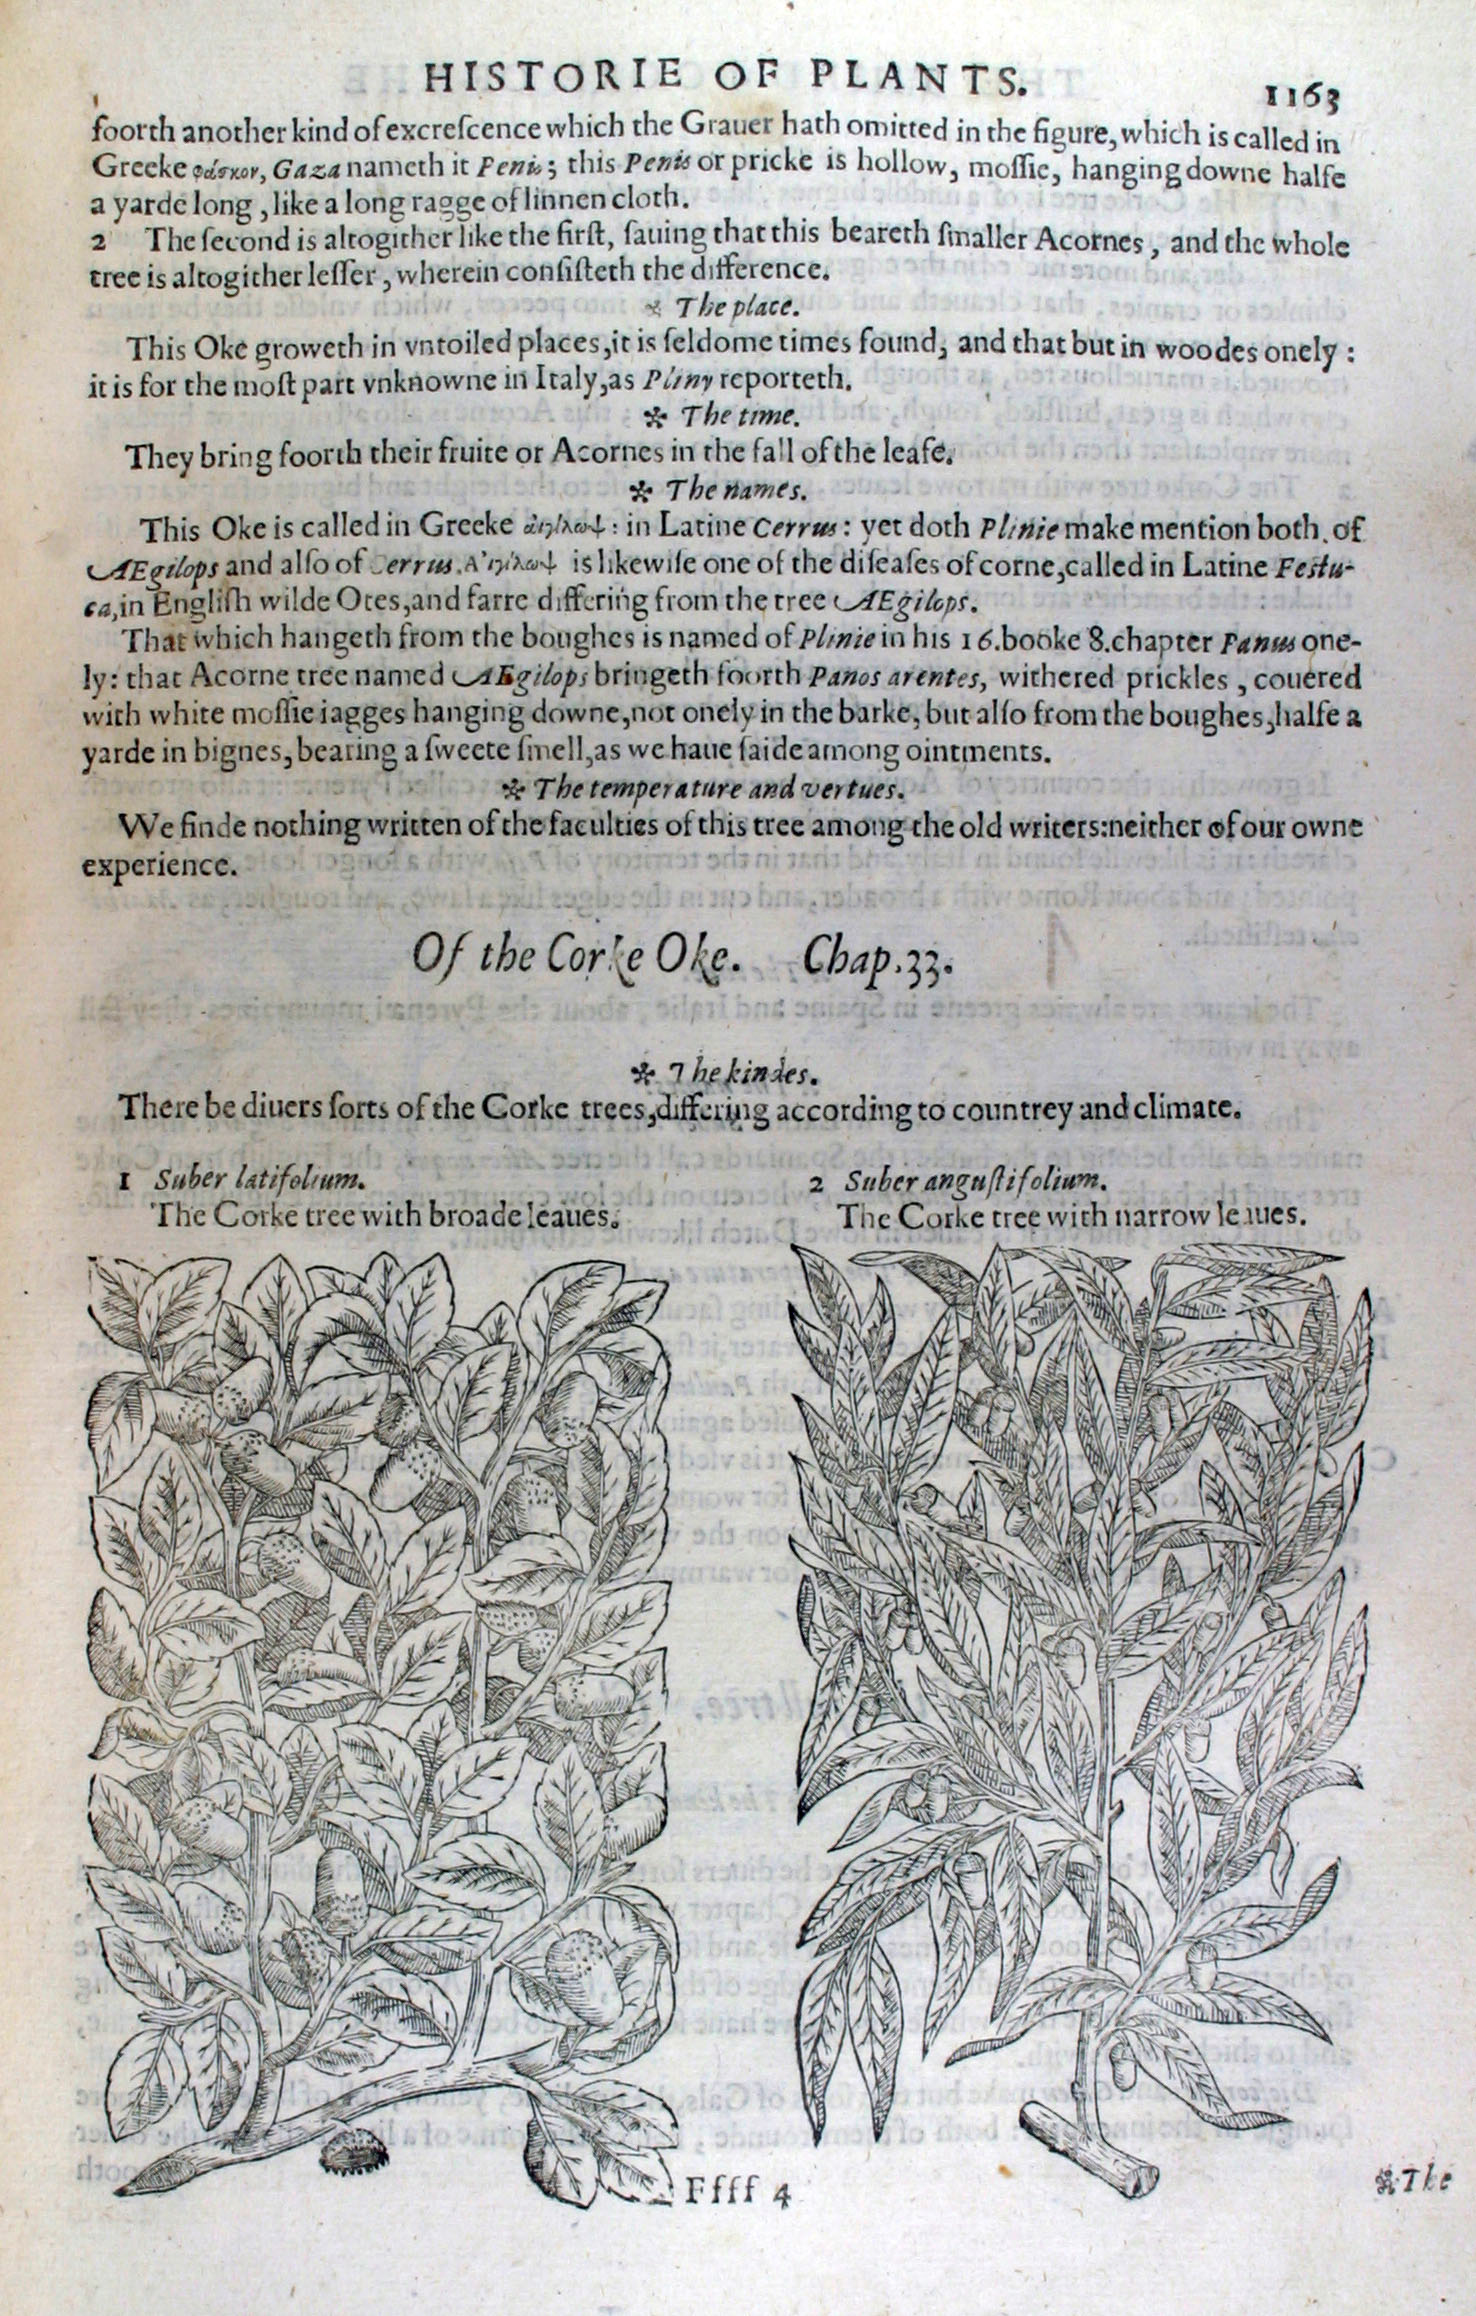 HISTORIE OF PLANTS. 1163
foorth another kind of excreſcence which the Grauer hath omitted in the figure, which is called in
Greeke φάσκον, Gaza nameth it Penis; this Penis or pricke is hollow, moſſie, hanging downe halfe
a yarde long, like a long ragge of linnen cloth.
2 The ſecond is altogither like the firſt, ſauing that this beareth ſmaller Acornes, and the whole
tree is altogither leſſer, wherein conſiſteth the difference.
* The place.
This Oke groweth in vntoiled places, it is ſeldome times found, and that but in woodes onely:
it is for the moſt part vnknowne in Italy, as Pliny reporteth.
* The time.
They bring foorth their fruite or Acornes in the fall of the leafe.
* The names.
This Oke is called in Greeke ἀιγίλωψ: in Latine Cerrus: yet doth Plinie make mention both of
AEgilops and alſo of Cerrus. Α᾿ιγίλωψ is likewiſe one of the diſeaſes of corne, called in Latine Feſtu-
ca, in Engliſh wilde Otes, and farre differing from the tree AEgilops.
That which hangeth from the boughes is named of Plinie in his 16. booke 8. chapter Panus one-
ly: that Acorne tree named AEgilops bringeth foorth Panos arentes, withered prickles, couered
with white moſſie iagges hanging downe, not onely in the barke, but alſo from the boughes, halfe a
yarde in bignes, bearing a ſweete ſmell, as we haue ſaide among ointments.
* The temperature and vertues.
We finde nothing written of the faculties of this tree among the old writers: neither of our owne
experience.
Of the Corke Oke. Chap. 33.
* The kindes.
There be diuers ſorts of the Corke trees, differing according to countrey and climate.
1 Suber latifolium.
The Corke tree with broade leaues.
2 Suber anguſtifolium.
The Corke tree with narrow leaues.
Ffff 4
* The